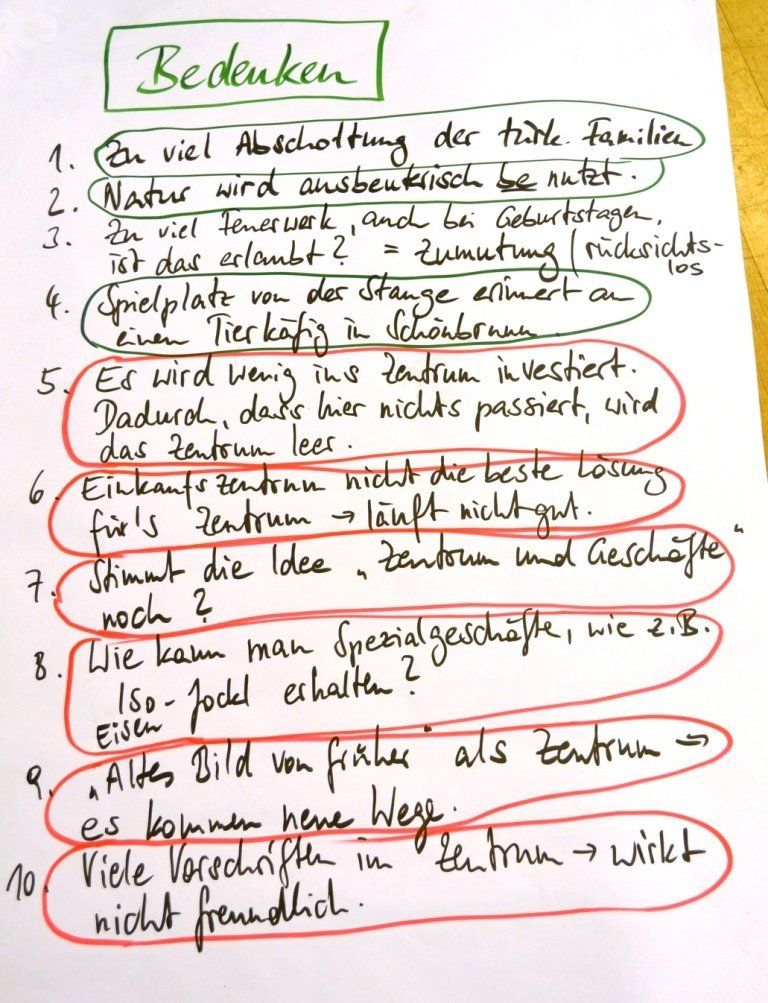 Bedenken
1. Zu viel Abschottung der türk. Familien
2. Natur wird ausbeuterisch be nutzt.
3. Zu viel Feuerwerk, auch bei Geburtstagen,
ist das erlaubt? = Zumutung / rücksichts-
los
4. Spielplatz von der Stange erinnert an
einen Tierkäfig in Schönbrunn.
5. Es wird wenig ins Zentrum investiert.
Dadurch, dass hier nichts passiert, wird
das Zentrum leer.
6. Einkaufszentrum nicht die beste Lösung
für's Zentrum → läuft nicht gut.
7. Stimmt die Idee „Zentrum und Geschäfte"
noch?
8. Wie kann man Spezialgeschäfte, wie z.B.
Iso-Jockl erhalten?
Eisen
9. „Altes Bild von früher" als Zentrum →
es kommen neue Wege.
10. Viele Vorschriften im Zentrum → wirkt
nicht freundlich.